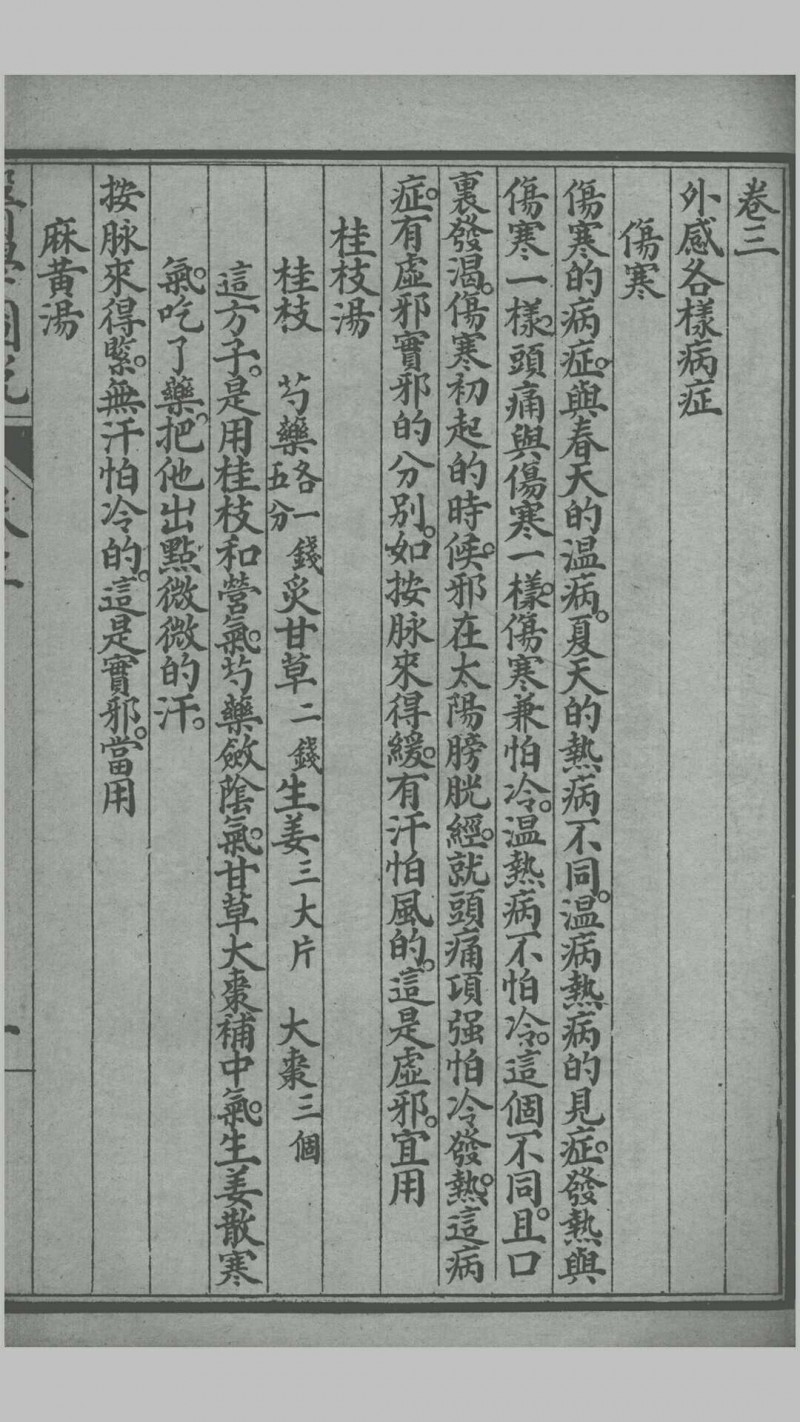 卷三
外感各樣病症
傷寒
傷寒的病症。與春天的温病。夏天的熱病不同。温病熱病的見症。發熱與
傷寒一樣。頭痛與傷寒一樣。傷寒兼怕冷。温熱病不怕冷。這個不同。且口
裏發渴。傷寒初起的時候。邪在太陽膀胱經。就頭痛項强怕冷發熱。這病
症。有虛邪實邪的分別。如按脉來得緩。有汗怕風的。這是虛邪。宜用
桂枝湯
桂枝 芍藥各一錢五分 炙甘草二錢 生姜三大片 大棗三個
這方子。是用桂枝和營氣。芍藥斂陰氣。甘草大棗補中氣。生姜散寒
氣。吃了藥。把他出點微微的汗。
按脉來得緊。無汗怕冷的。這是實邪。當用
麻黃湯